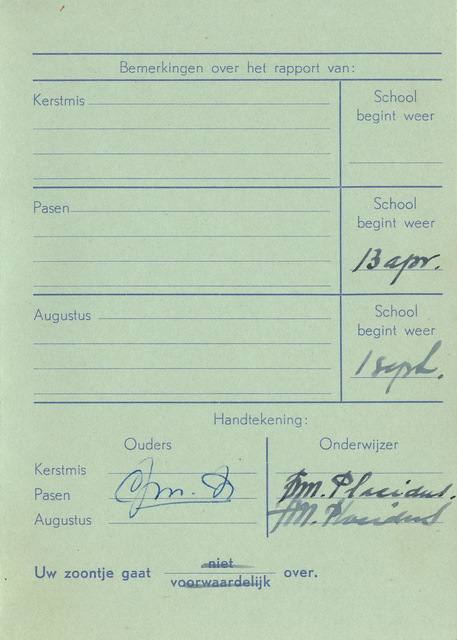 Bemerkingen over het rapport van:
Kerstmis
School
begint weer
Pasen
School
begint weer
13 apr.
Augustus
School
begint weer
1 sept.
Handtekening:
Ouders
Onderwijzer
Kerstmis
Pasen
M. Placidus.
Augustus
M. Placidus
Uw zoontje gaat niet voorwaardelijk over.